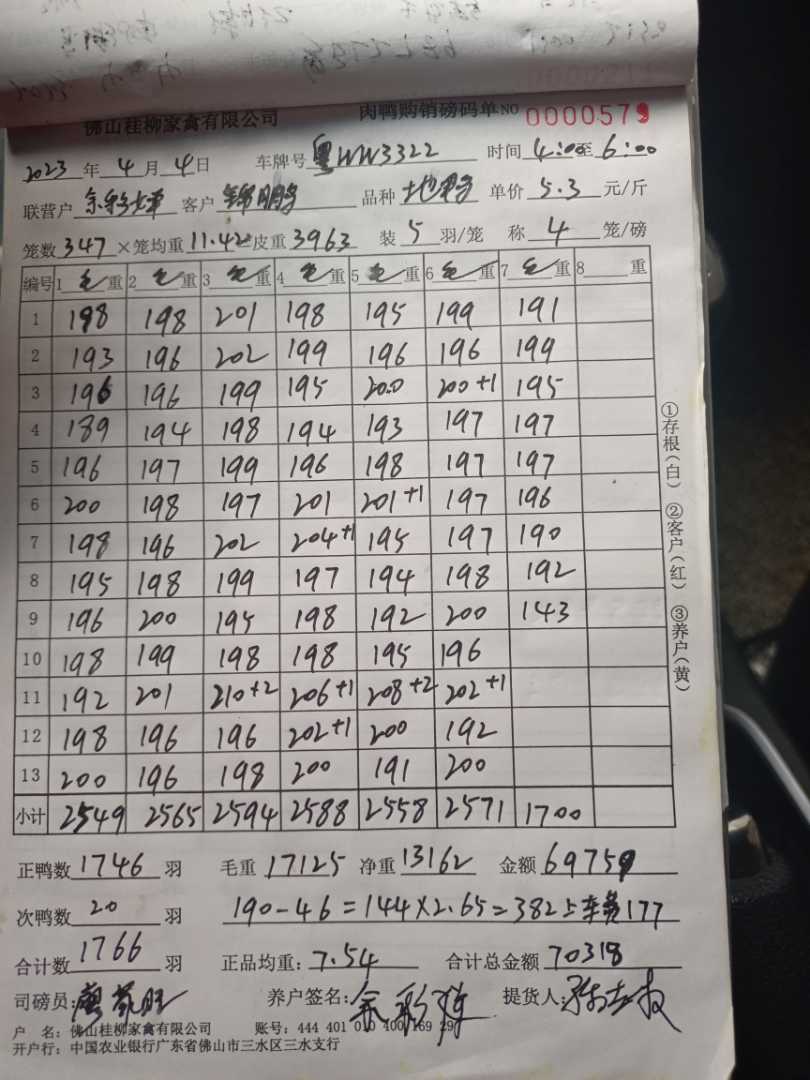 佛山桂柳家禽有限公司 肉鸭购销磅码单 NO 0000579
2023年4月4日 车牌号 粤WW3322 时间 4:00至6:00
联营户 客户 锦鹏 品种 单价 5.3 元/斤
笼数 347 ×笼均重 11.42 皮重 3963 装 5 羽/笼 称 4 笼/磅
编号 1 毛重 2 毛重 3 毛重 4 毛重 5 毛重 6 毛重 7 毛重 8 重
1 198 198 201 198 195 199 191
2 193 196 202 199 196 196 199
3 196 196 199 195 200 200+1 195
4 189 194 198 194 193 197 197
5 196 197 199 196 198 197 197
6 200 198 197 201 201+1 197 196
7 198 196 202 204+1 195 197 190
8 195 198 199 197 194 198 192
9 196 200 195 198 192 200 143
10 198 199 198 198 195 196
11 192 201 210+2 206+1 208+2 202+1
12 198 196 196 202+1 200 192
13 200 196 198 200 191 200
小计 2549 2565 2594 2588 2558 2571 1700
正鸭数 1746 羽 毛重 17125 净重 13162 金额 69759
次鸭数 20 羽 190-46=144×2.65=382 上车费177
合计数 1766 羽 正品均重: 7.54 合计总金额 70318
司磅员: 养户签名: 提货人:
户 名: 佛山桂柳家禽有限公司 账号: 444 401 010 400 169 29
开户行: 中国农业银行广东省佛山市三水区三水支行
①存根(白) ②客户(红) ③养户(黄)